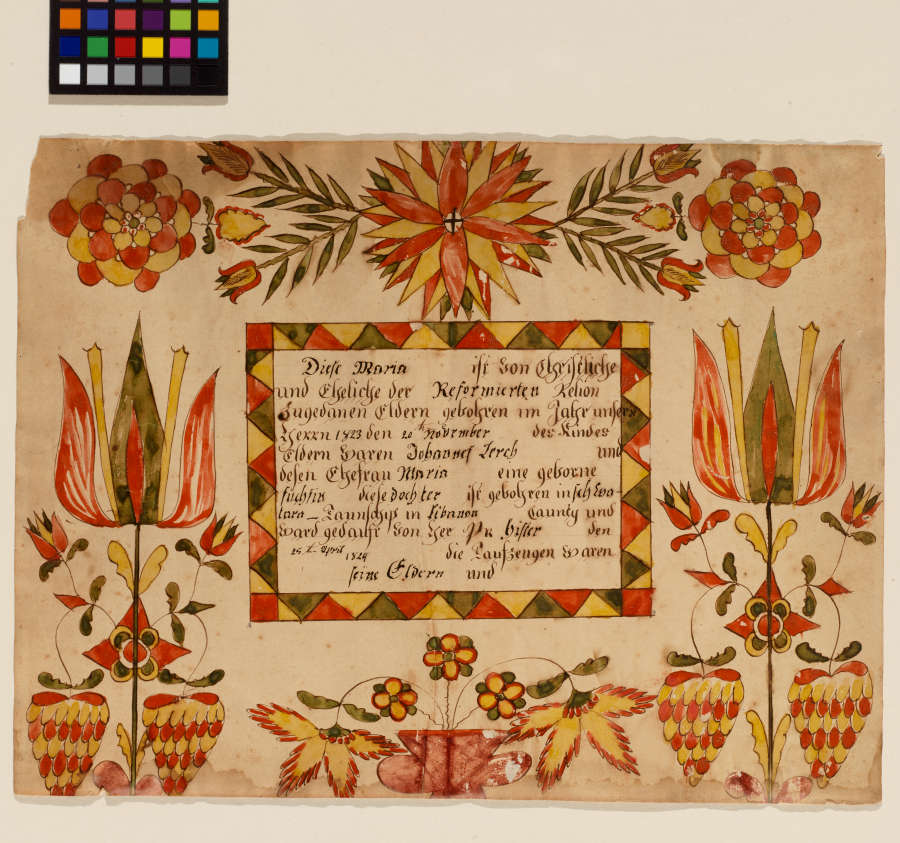 Diese Maria ist von Christliche
und Eheliche der Reformierten Relion
Zugedanen Eldern gebohren im Jahr unsers
Herrn 1823 den 20th November des Kindes
Eldern Waren Johannes Lerch und
desen Ehefrau Maria eine geborne
fuchsin diese dochter ist gebohren in Schwa-
tara Taunschip in Libanon Caunty und
Ward gedauft von Her Pr. Hister den
25t. April 1824 die Taufzeugen Waren
seine Eldern und